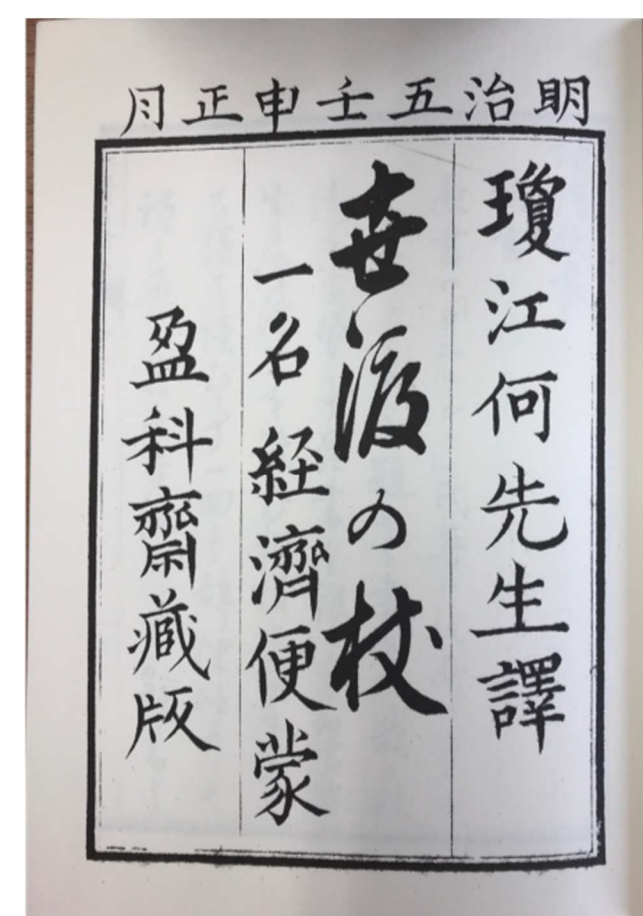 明治五壬申正月
瓊江何先生譯
世渡の杖
一名 経濟便蒙
盈科齋藏版